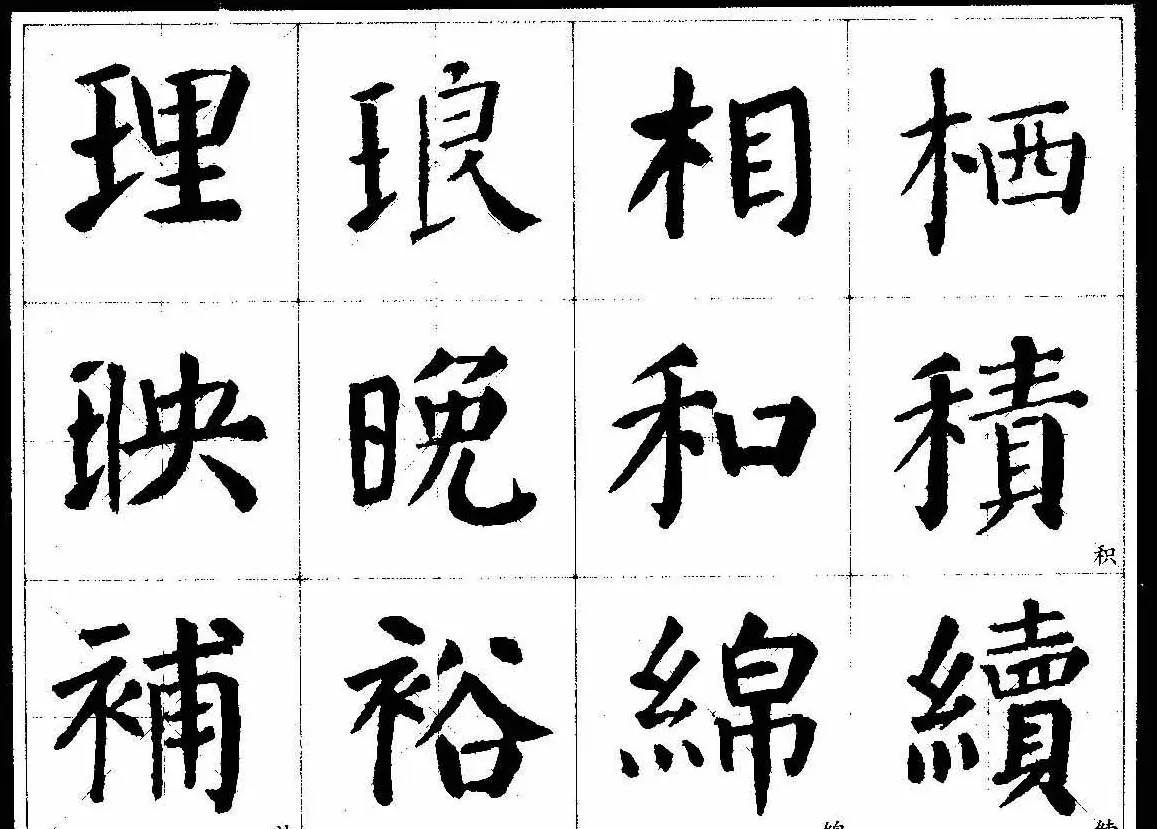 理 琅 相 栖
瑛 晚 和 積
积
補 裕 綿 續